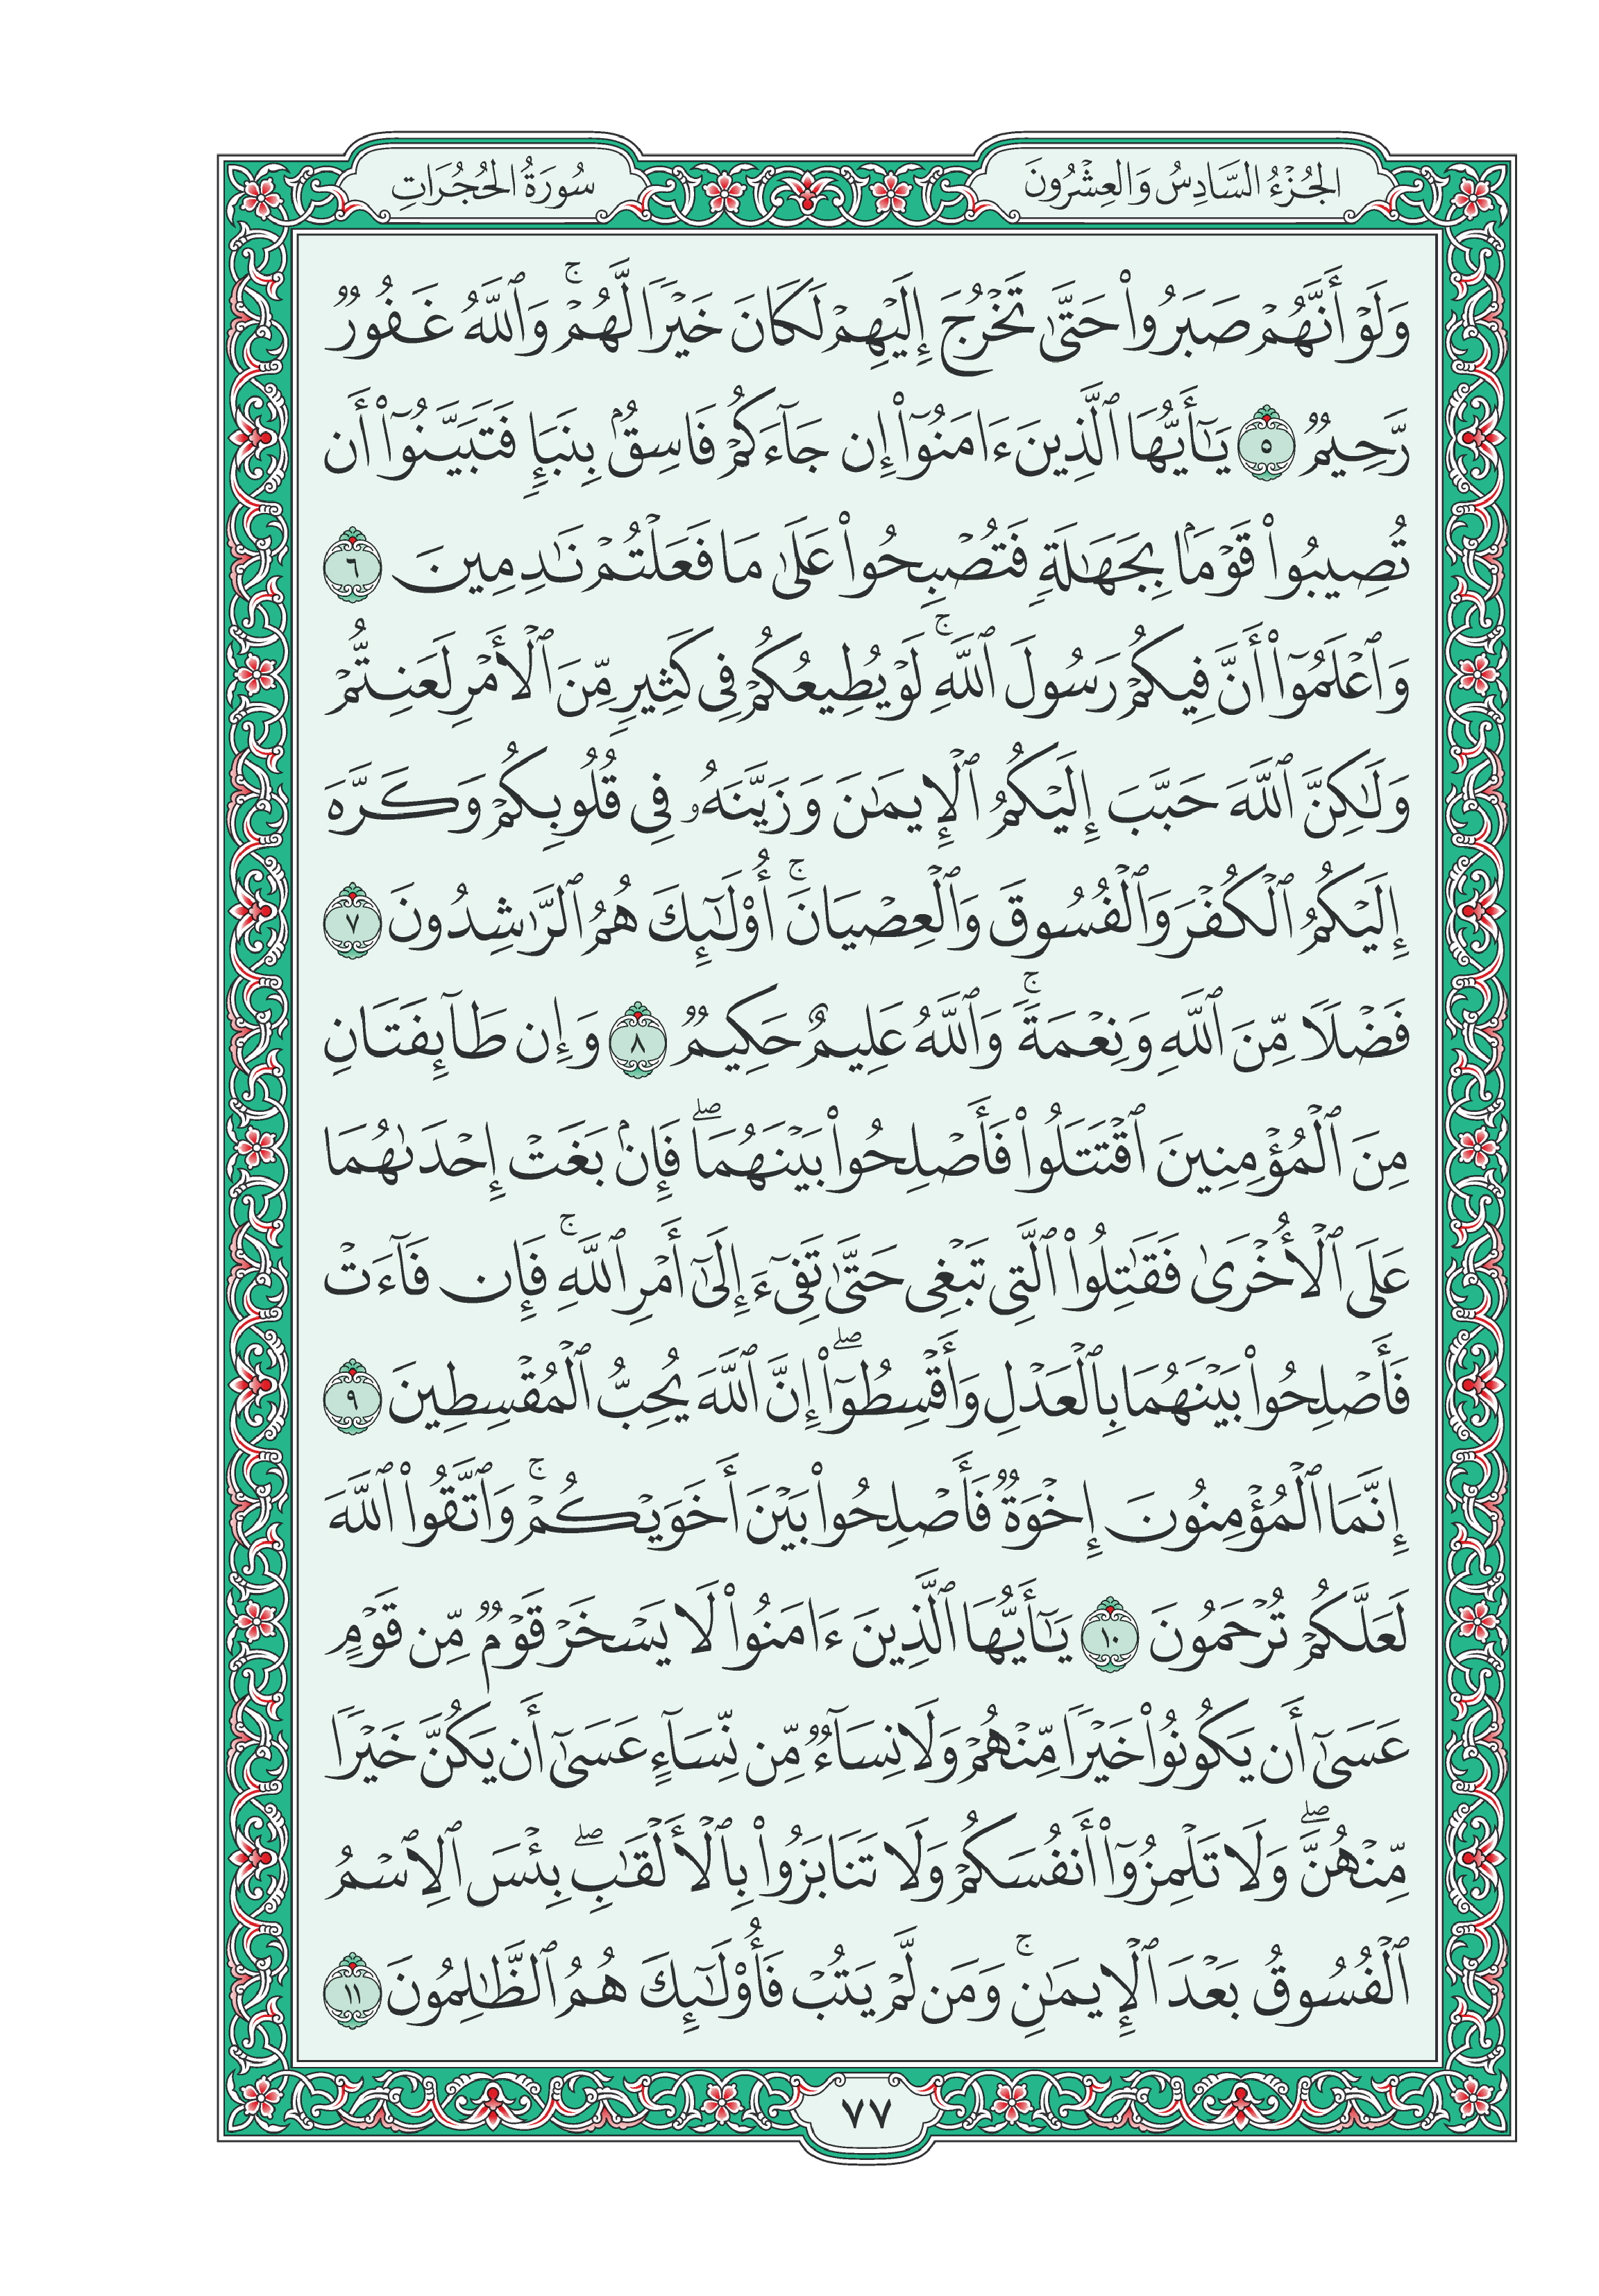 الجُزْءُ السَّادِسُ وَالعِشْرُونَ
سُورَةُ الحُجُرَاتِ
وَلَوْ أَنَّهُمْ صَبَرُوا۟ حَتَّىٰ تَخْرُجَ إِلَيْهِمْ لَكَانَ خَيْرًا لَّهُمْ ۚ وَٱللَّهُ غَفُورٌ
رَّحِيمٌ ٥ يَـٰٓأَيُّهَا ٱلَّذِينَ ءَامَنُوٓا۟ إِن جَآءَكُمْ فَاسِقٌۢ بِنَبَإٍ فَتَبَيَّنُوٓا۟ أَن
تُصِيبُوا۟ قَوْمًۢا بِجَهَـٰلَةٍ فَتُصْبِحُوا۟ عَلَىٰ مَا فَعَلْتُمْ نَـٰدِمِينَ ٦
وَٱعْلَمُوٓا۟ أَنَّ فِيكُمْ رَسُولَ ٱللَّهِ ۚ لَوْ يُطِيعُكُمْ فِى كَثِيرٍ مِّنَ ٱلْأَمْرِ لَعَنِتُّمْ
وَلَـٰكِنَّ ٱللَّهَ حَبَّبَ إِلَيْكُمُ ٱلْإِيمَـٰنَ وَزَيَّنَهُۥ فِى قُلُوبِكُمْ وَكَرَّهَ
إِلَيْكُمُ ٱلْكُفْرَ وَٱلْفُسُوقَ وَٱلْعِصْيَانَ ۚ أُو۟لَـٰٓئِكَ هُمُ ٱلرَّٰشِدُونَ ٧
فَضْلًا مِّنَ ٱللَّهِ وَنِعْمَةً ۚ وَٱللَّهُ عَلِيمٌ حَكِيمٌ ٨ وَإِن طَآئِفَتَانِ
مِنَ ٱلْمُؤْمِنِينَ ٱقْتَتَلُوا۟ فَأَصْلِحُوا۟ بَيْنَهُمَا ۖ فَإِنۢ بَغَتْ إِحْدَىٰهُمَا
عَلَى ٱلْأُخْرَىٰ فَقَـٰتِلُوا۟ ٱلَّتِى تَبْغِى حَتَّىٰ تَفِىٓءَ إِلَىٰٓ أَمْرِ ٱللَّهِ ۚ فَإِن فَآءَتْ
فَأَصْلِحُوا۟ بَيْنَهُمَا بِٱلْعَدْلِ وَأَقْسِطُوٓا۟ ۖ إِنَّ ٱللَّهَ يُحِبُّ ٱلْمُقْسِطِينَ ٩
إِنَّمَا ٱلْمُؤْمِنُونَ إِخْوَةٌ فَأَصْلِحُوا۟ بَيْنَ أَخَوَيْكُمْ ۚ وَٱتَّقُوا۟ ٱللَّهَ
لَعَلَّكُمْ تُرْحَمُونَ ١٠ يَـٰٓأَيُّهَا ٱلَّذِينَ ءَامَنُوا۟ لَا يَسْخَرْ قَوْمٌ مِّن قَوْمٍ
عَسَىٰٓ أَن يَكُونُوا۟ خَيْرًا مِّنْهُمْ وَلَا نِسَآءٌ مِّن نِّسَآءٍ عَسَىٰٓ أَن يَكُنَّ خَيْرًا
مِّنْهُنَّ ۖ وَلَا تَلْمِزُوٓا۟ أَنفُسَكُمْ وَلَا تَنَابَزُوا۟ بِٱلْأَلْقَـٰبِ ۖ بِئْسَ ٱلِٱسْمُ
ٱلْفُسُوقُ بَعْدَ ٱلْإِيمَـٰنِ ۚ وَمَن لَّمْ يَتُبْ فَأُو۟لَـٰٓئِكَ هُمُ ٱلظَّـٰلِمُونَ ١١
٧٧